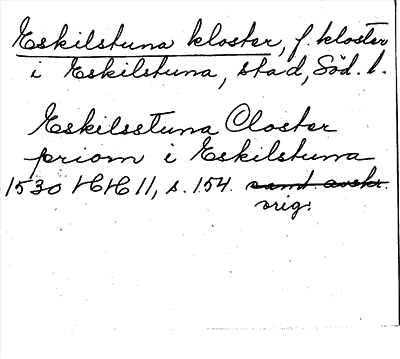 Eskilstuna kloster, f. kloster
i Eskilstuna, stad, Söd. l.
Eskilsstuna Closter
priorn i Eskilstuna
1530 HH 11, s. 154. samt avskr.
orig.